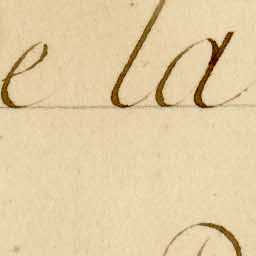 e la